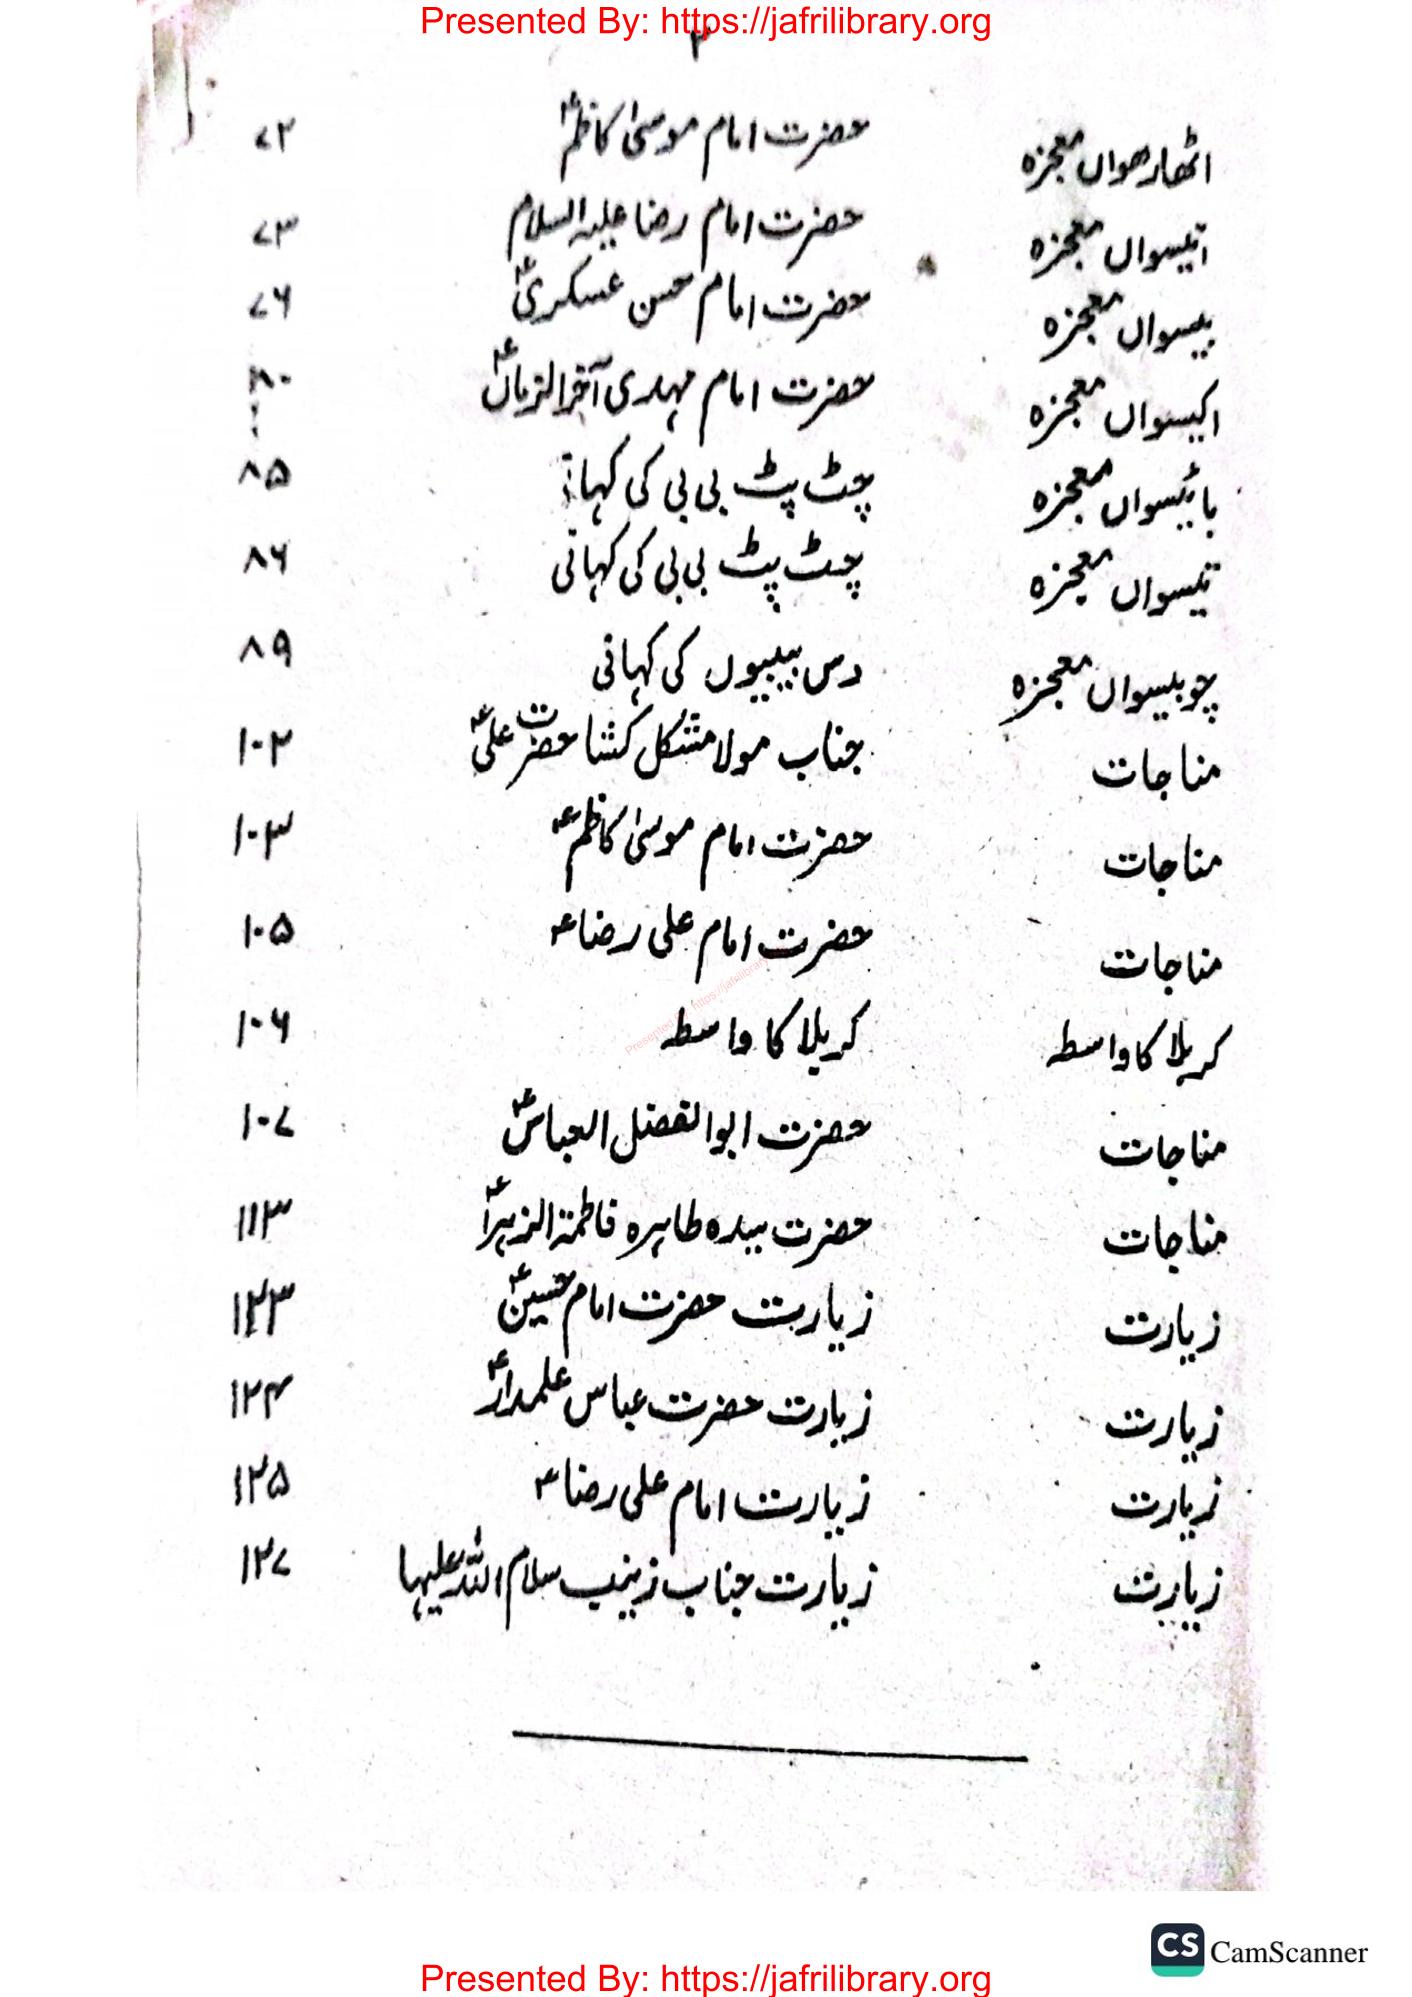 Presented By: https://jafrilibrary.org
۳
اٹھارھواں معجزہ حضرت امام موسیٰ کاظمؑ ۷۲
انیسواں معجزہ حضرت امام رضا علیہ السلام ۷۳
بیسواں معجزہ حضرت امام حسن عسکریؑ ۷۶
اکیسواں معجزہ حضرت امام مہدی آخر الزماںؑ ۸۰
بائیسواں معجزہ چٹ پٹ بی بی کی کہانی ۸۵
تیسواں معجزہ چٹ پٹ بی بی کی کہانی ۸۶
چوبیسواں معجزہ دس بیبیوں کی کہانی ۸۹
مناجات جناب مولا مشکل کشا حضرت علیؑ ۱۰۲
مناجات حضرت امام موسیٰ کاظمؑ ۱۰۳
مناجات حضرت امام علی رضاؑ ۱۰۵
کربلا کا واسطہ کربلا کا واسطہ ۱۰۶
مناجات حضرت ابوالفضل العباسؑ ۱۰۷
مناجات حضرت سیدہ طاہرہ فاطمۃ الزہراؑ ۱۱۳
زیارت زیارت حضرت امام حسینؑ ۱۲۳
زیارت زیارت حضرت عباس علمدارؑ ۱۲۴
زیارت زیارت امام علی رضاؑ ۱۲۵
زیارت زیارت جناب زینب سلام اللہ علیہا ۱۲۷
Presented by: https://jafrilibrary
CS CamScanner
Presented By: https://jafrilibrary.org